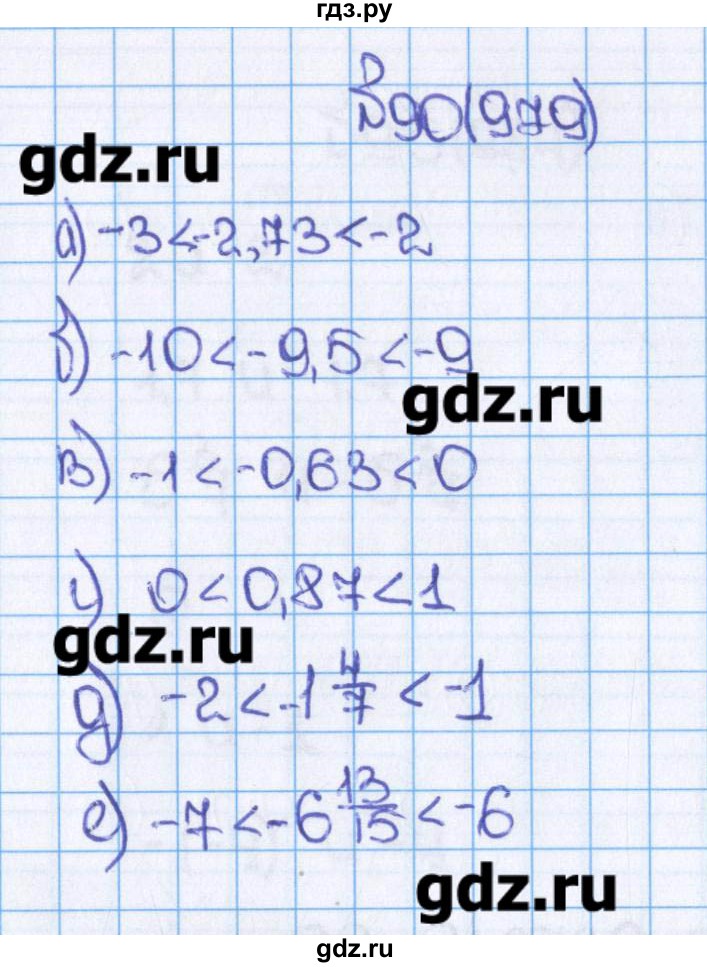 гдз.ру
№ 90(979)
gdz.ru
а) -3 < -2,73 < -2
б) -10 < -9,5 < -9
gdz.ru
в) -1 < -0,63 < 0
г) 0 < 0,87 < 1
gdz.ru
д) -2 < -1 4/7 < -1
е) -7 < -6 13/15 < -6
gdz.ru
gdz.ru